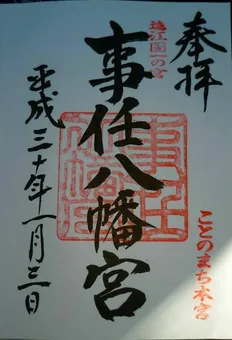 奉拝
遠江国一の宮
事任八幡宮
ことのまち本宮
平成三十年一月三日